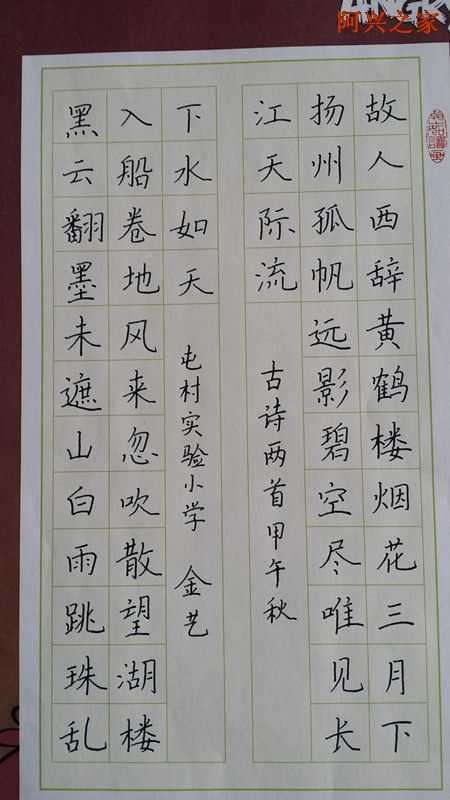 阿兴之家
故人西辞黄鹤楼烟花三月下
扬州孤帆远影碧空尽唯见长
江天际流
古诗两首甲午秋
黑云翻墨未遮山白雨跳珠乱
入船卷地风来忽吹散望湖楼
下水如天
屯村实验小学 金艺